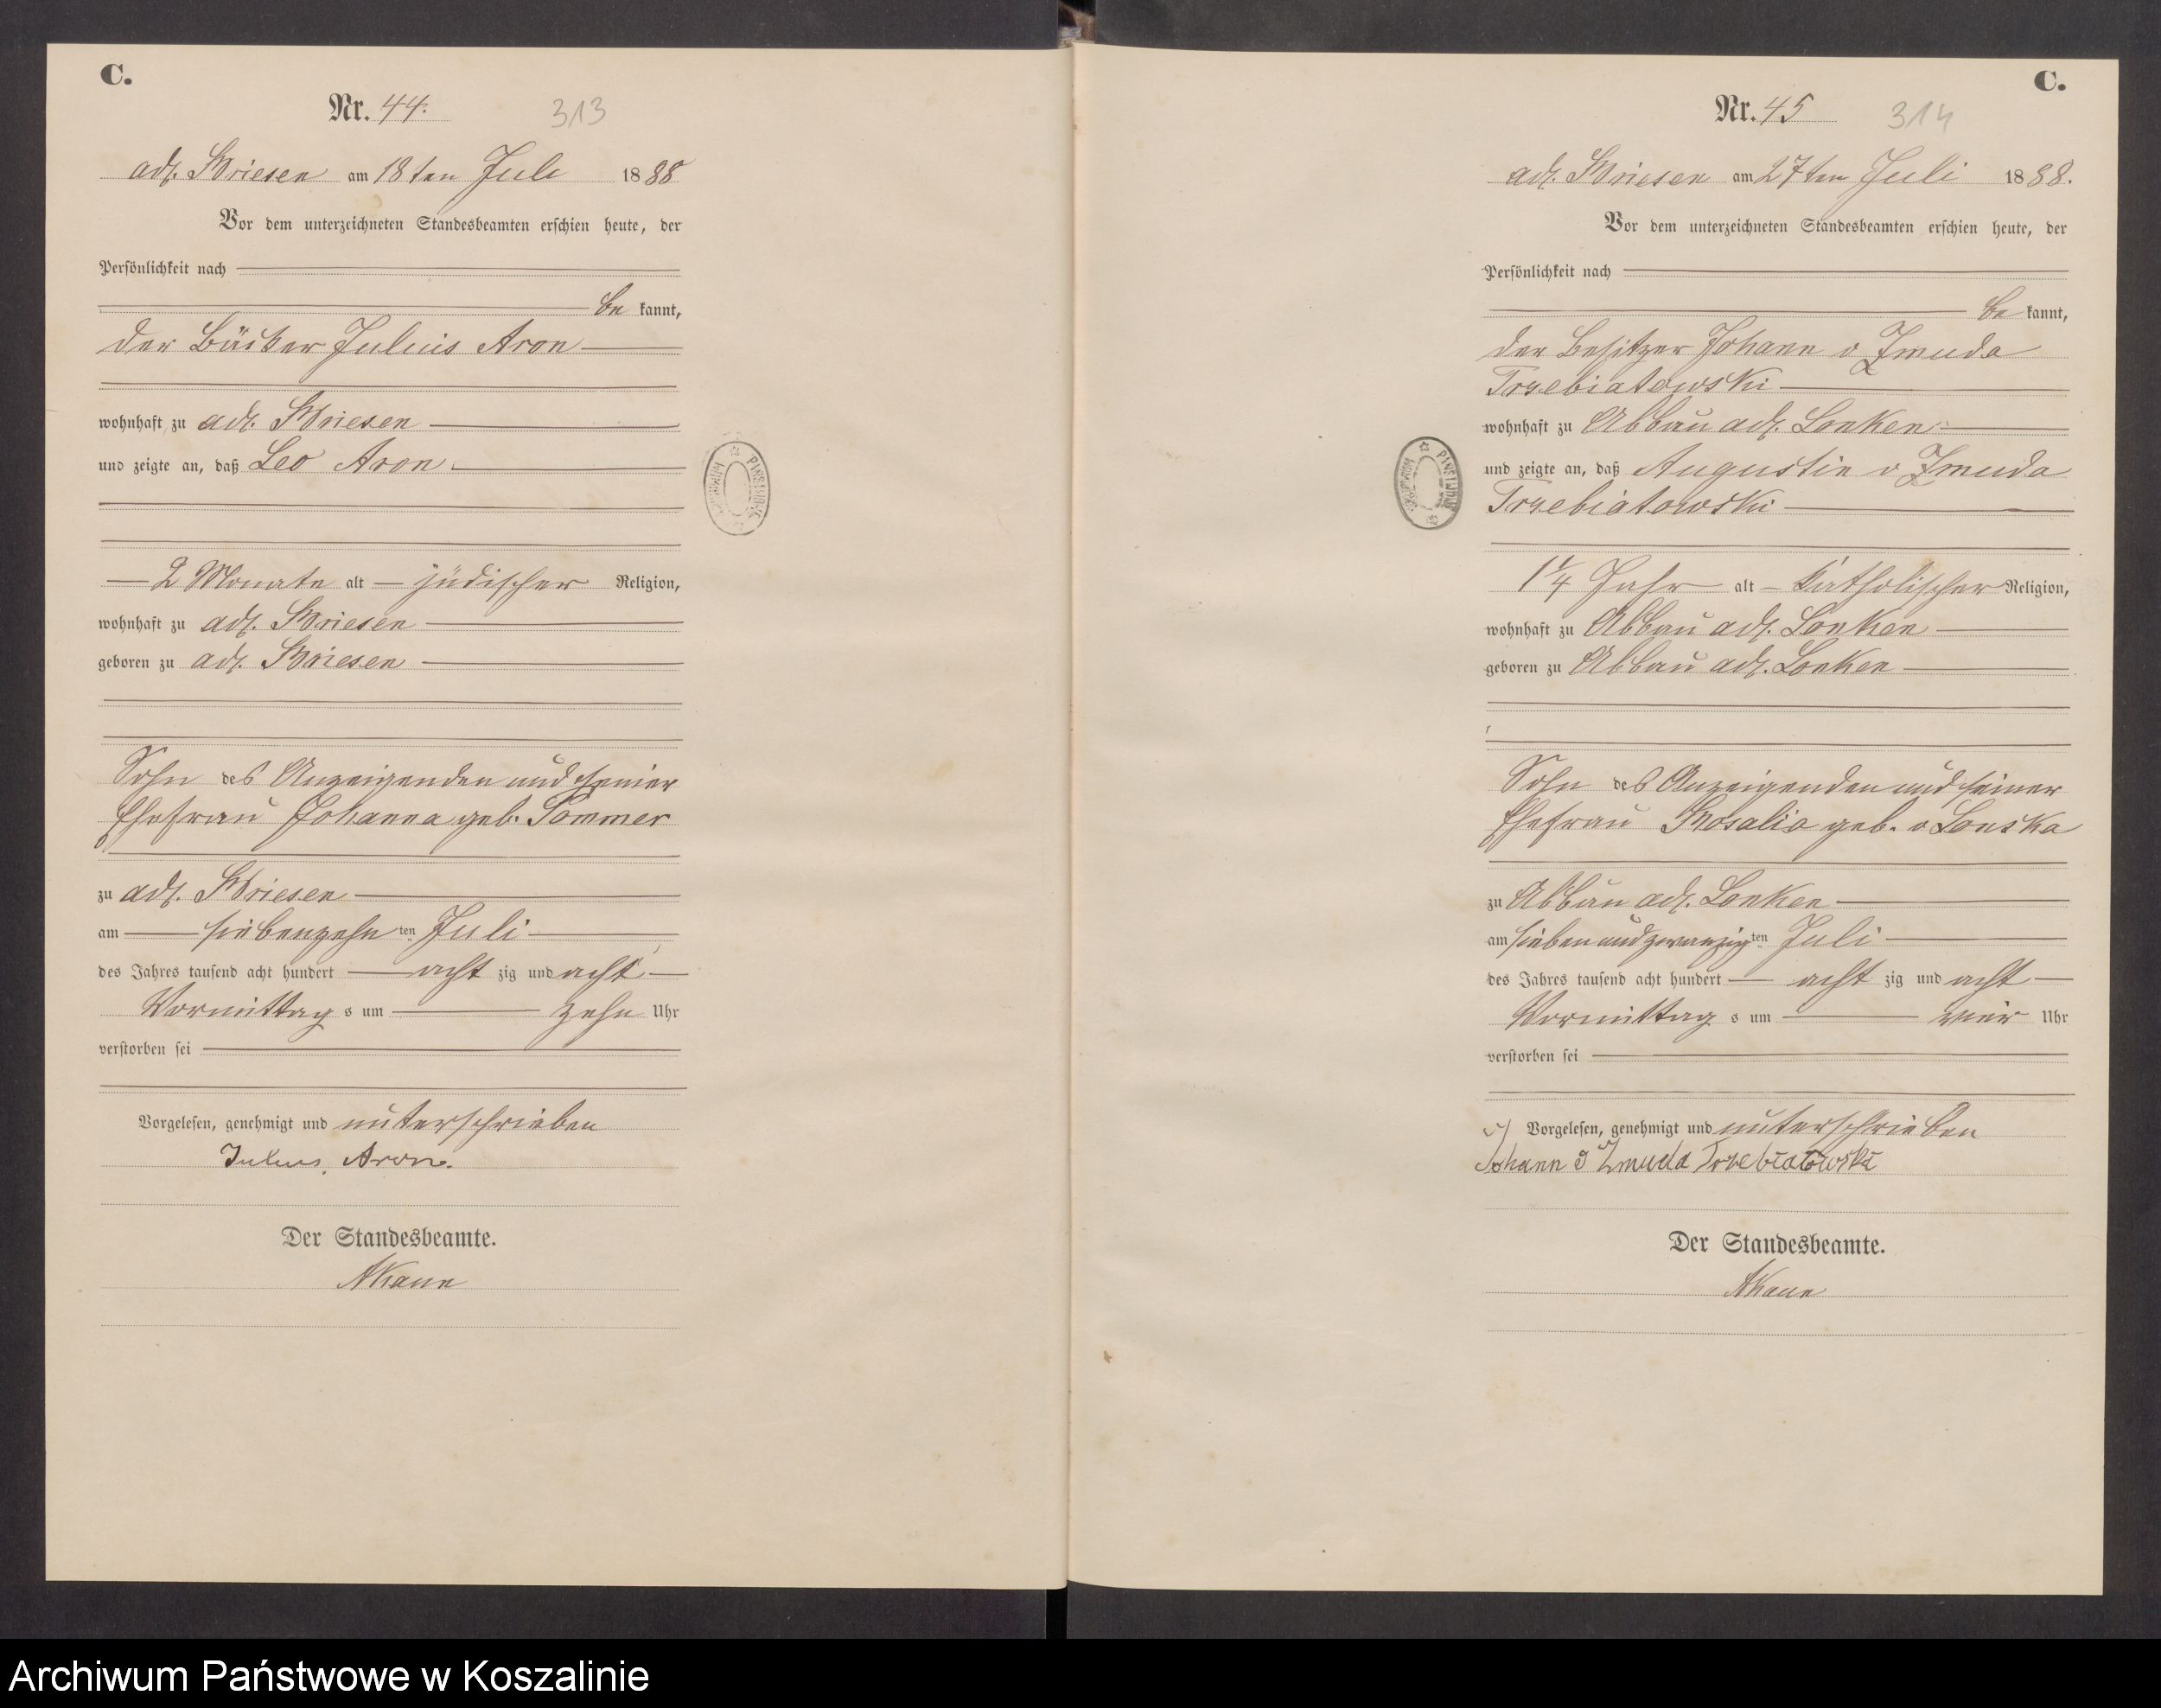 C.
Nr. 44. 313
adl. Briesen am 18ten Juli 1888
Vor dem unterzeichneten Standesbeamten erschien heute, der
Persönlichkeit nach
be kannt,
der Bäcker Julius Aron
wohnhaft zu adl. Briesen
und zeigte an, daß Leo Aron
2 Monate alt jüdischer Religion,
wohnhaft zu adl. Briesen
geboren zu adl. Briesen
Sohn des Anzeigenden und seiner
Ehefrau Johanna geb. Sommer
zu adl. Briesen
am siebenzehn ten Juli
des Jahres tausend acht hundert acht zig und acht
Vormittag s um zehn Uhr
verstorben sei
Vorgelesen, genehmigt und unterschrieben
Julius Aron.
Der Standesbeamte.
C.
Nr. 45 314
adl. Briesen am 27ten Juli 1888.
Vor dem unterzeichneten Standesbeamten erschien heute, der
Persönlichkeit nach
be kannt,
der Besitzer Johann v Zmuda
Trzebiatowski
wohnhaft zu Abbau adl. Lonken
und zeigte an, daß Augustin v Zmuda
Trzebiatowski
1 1/4 Jahr alt katholischer Religion,
wohnhaft zu Abbau adl. Lonken
geboren zu Abbau adl. Lonken
Sohn des Anzeigenden und seiner
Ehefrau Rosalia geb. v Lonska
zu Abbau adl. Lonken
am siebenundzwanzig ten Juli
des Jahres tausend acht hundert acht zig und acht
Vormittag s um vier Uhr
verstorben sei
Vorgelesen, genehmigt und unterschrieben
Johann v Zmuda Trzebiatowski
Der Standesbeamte.
Archiwum Państwowe w Koszalinie